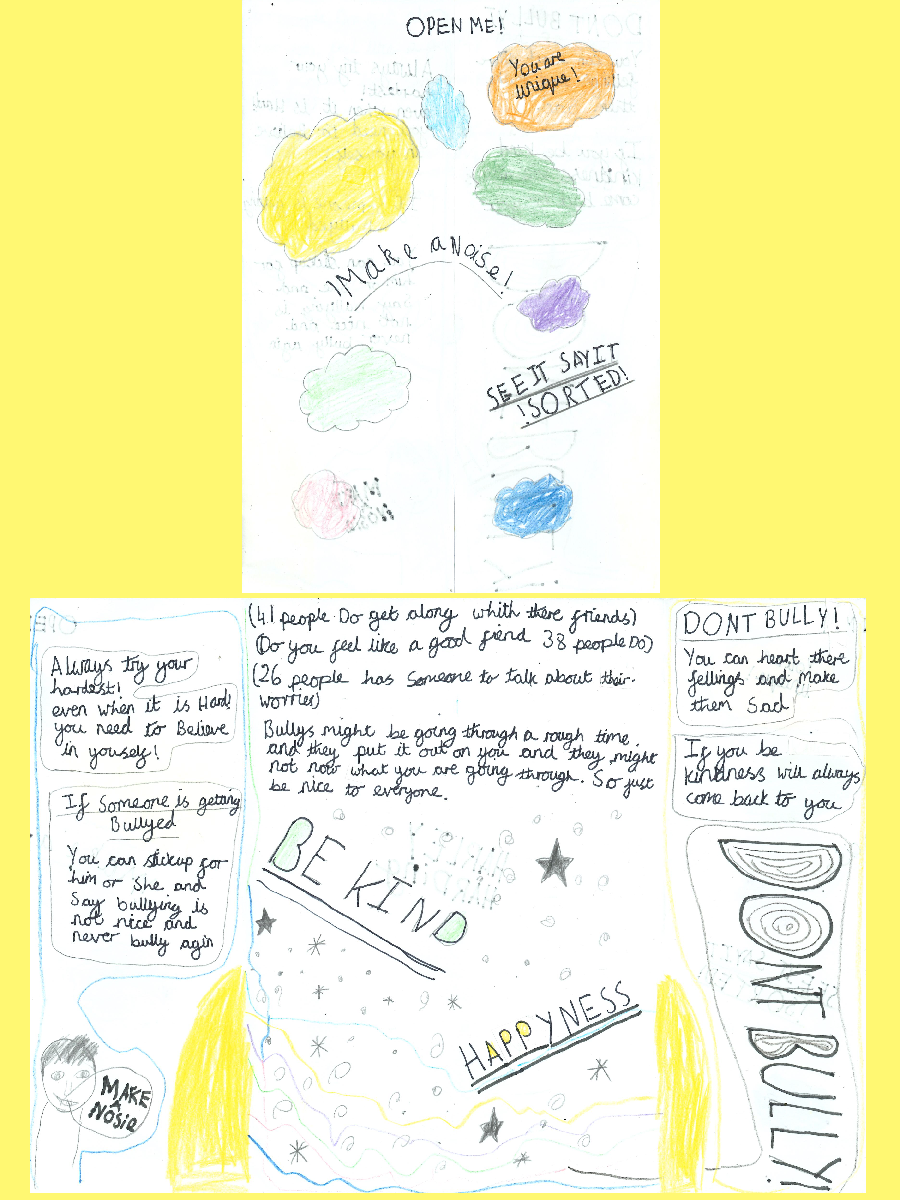 OPEN ME!
You are
unique!
!Make a Noise!
SEE IT SAY IT
!SORTED!
Always try your
hardest!
even when it is Hard!
you need to Believe
in youself!
If Someone is getting
Bullyed
You can stickup for
him or She and
Say bullying is
not nice and
never bully agin
MAKE
A
NOSIE
(41 people Do get along whith there friends)
(Do you feel like a good fiend 38 people Do)
(26 people has Someone to talk about their
worries)
Bullys might be going through a rough time
and they put it out on you and they might
not now what you are going through. So just
be nice to everyone.
BE KIND
HAPPYNESS
DONT BULLY!
You can heart there
fellings and Make
them Sad
If you be
kindness will always
come back to you
DONT BULLY!